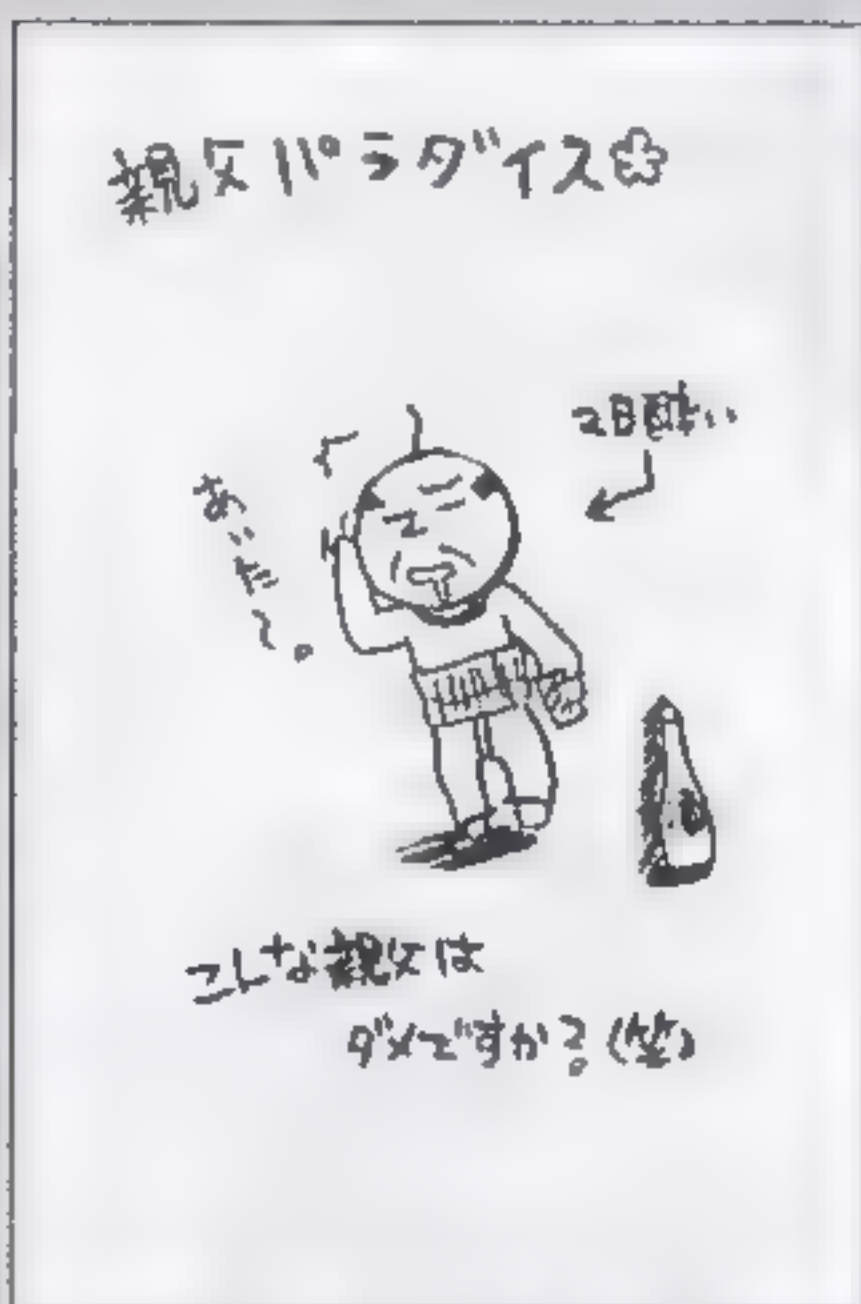 親父パラダイス
2日酔い
あいだ～。
こんな親父は
ダメですか？(笑)